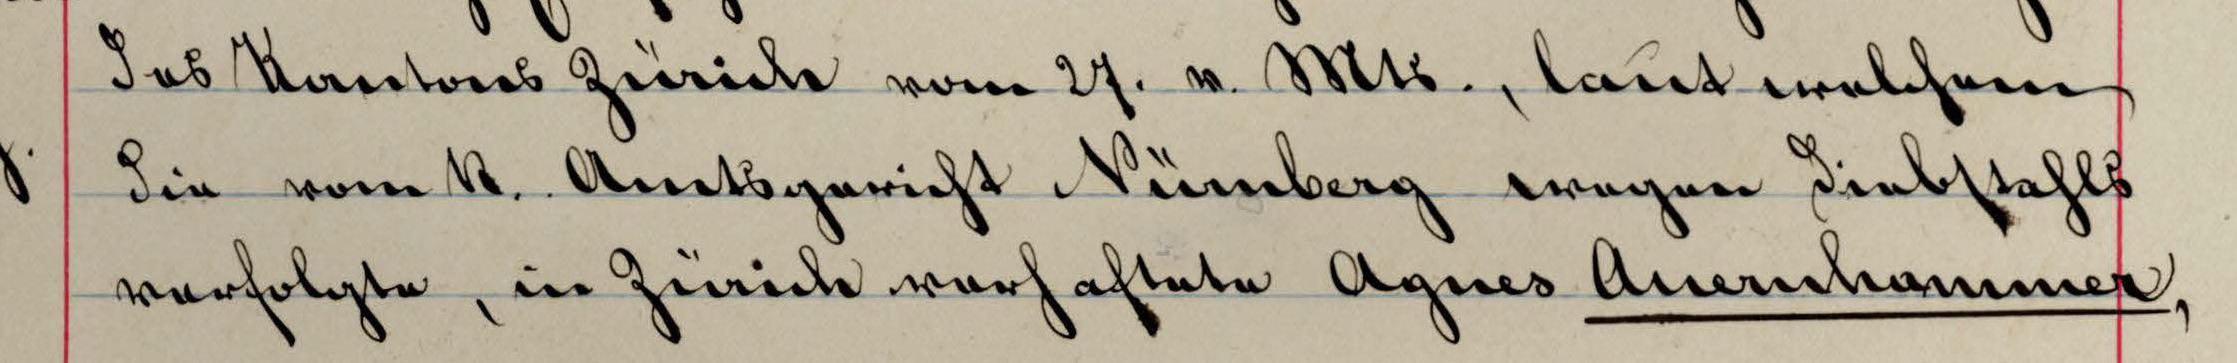 des Kantons Zürich vom 27. v. Mts., laut welchem
die vom K. Amtsgericht Nürnberg wegen Diebstahls
verfolgte, in Zürich verhaftete Agnes Auernhammer,